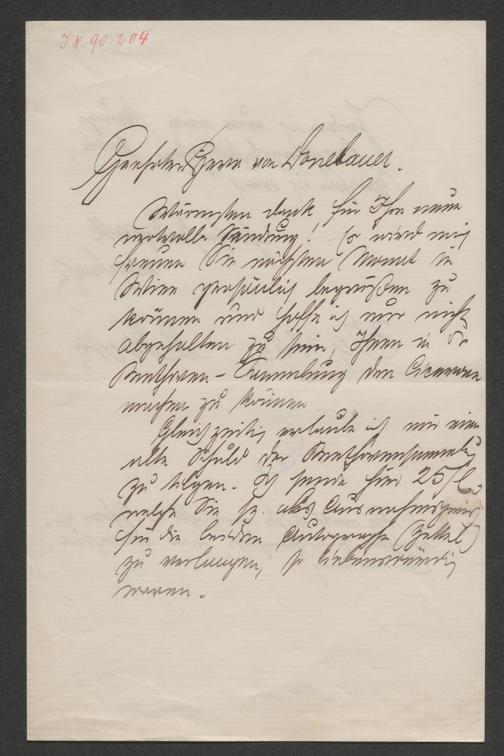 I.N. 90.204
Geehrter Herr von Donebauer.
Wärmsten Dank für Ihre neue
wertvolle Sendung! Es wird mich
freuen Sie nächsten Monat in
Wien persönlich begrüßen zu
können und hoffe ich nur nicht
abgehalten zu sein, Ihnen in der
Beethoven-Sammlung den Cicerone
machen zu können
Gleichzeitig erlaube ich mir eine
alte Schuld der Beethovensammlung
zu tilgen. Ich sende hier 25 fl.
welche Sie als Ausnahmspreis
für die beiden Autographe (Zettel)
zu verlangen, so liebenswürdig
waren.